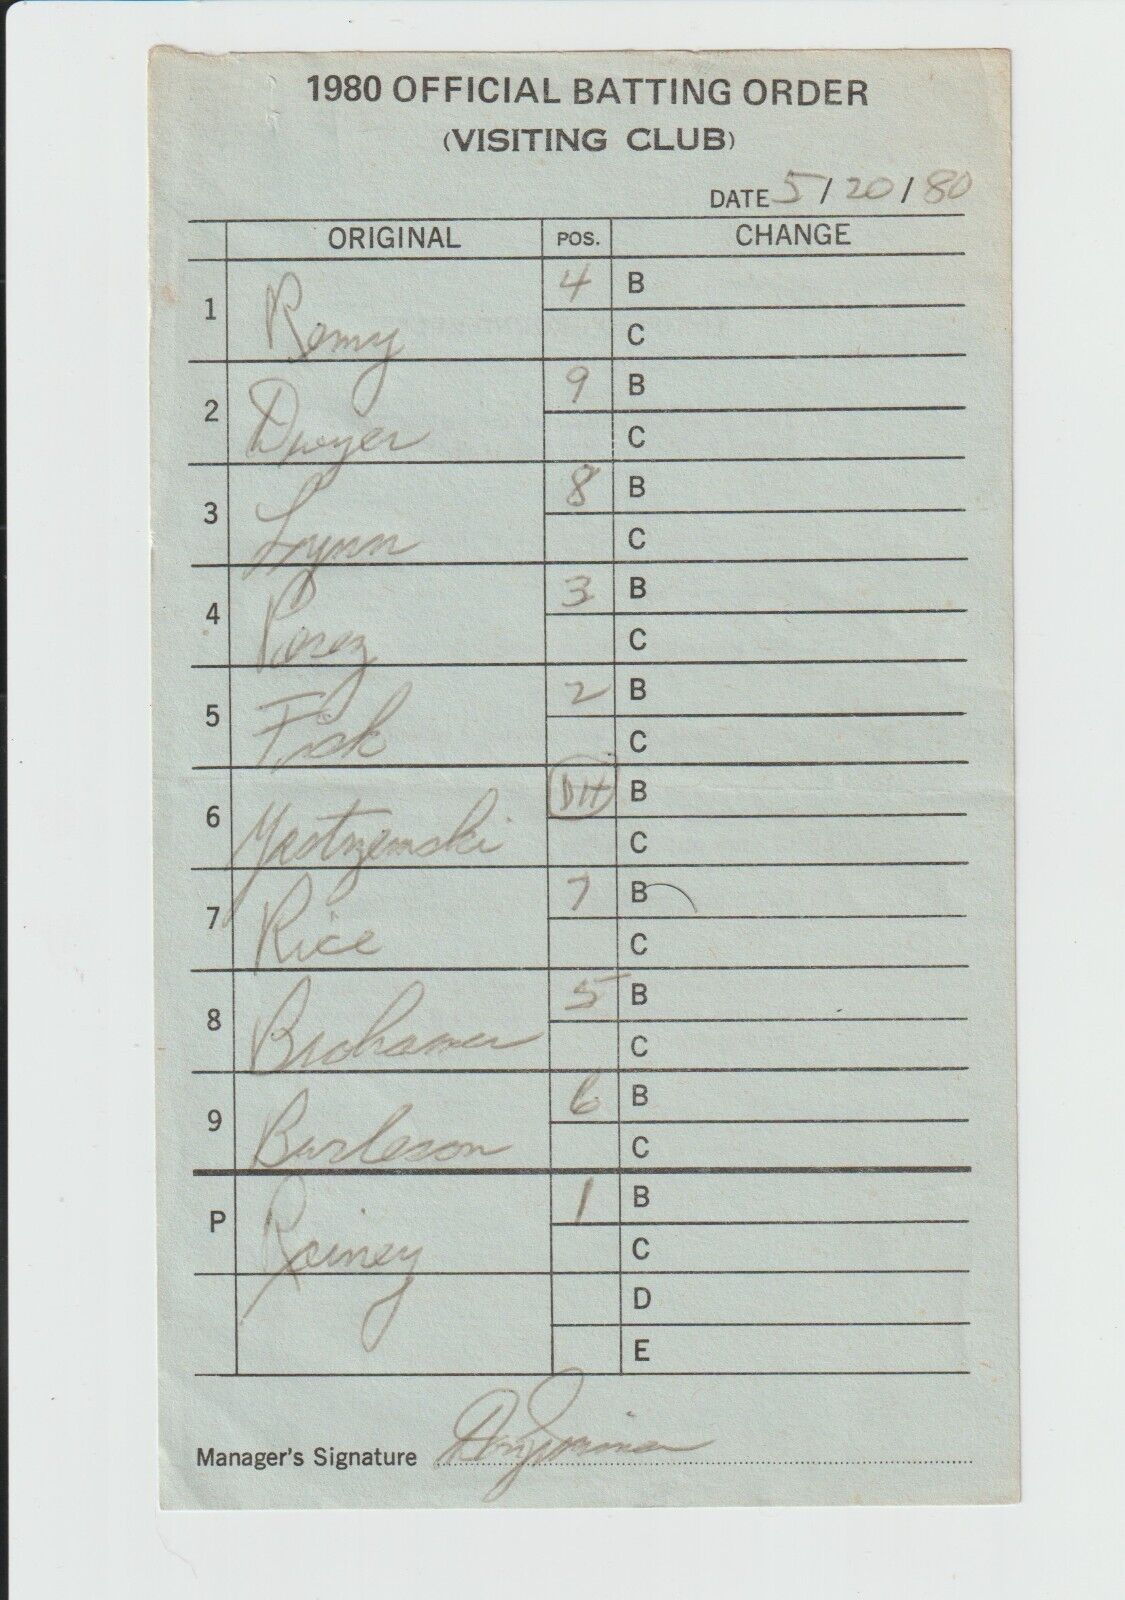 1980 OFFICIAL BATTING ORDER
(VISITING CLUB)
DATE 5/20/80
ORIGINAL POS. CHANGE
1 Remy 4 B
C
2 Dwyer 9 B
C
3 Lynn 8 B
C
4 Perez 3 B
C
5 Fisk 2 B
C
6 Yastrzemski DH B
C
7 Rice 7 B
C
8 Brohamer 5 B
C
9 Burleson 6 B
C
P Rainey 1 B
C
D
E
Manager's Signature Don Zimmer